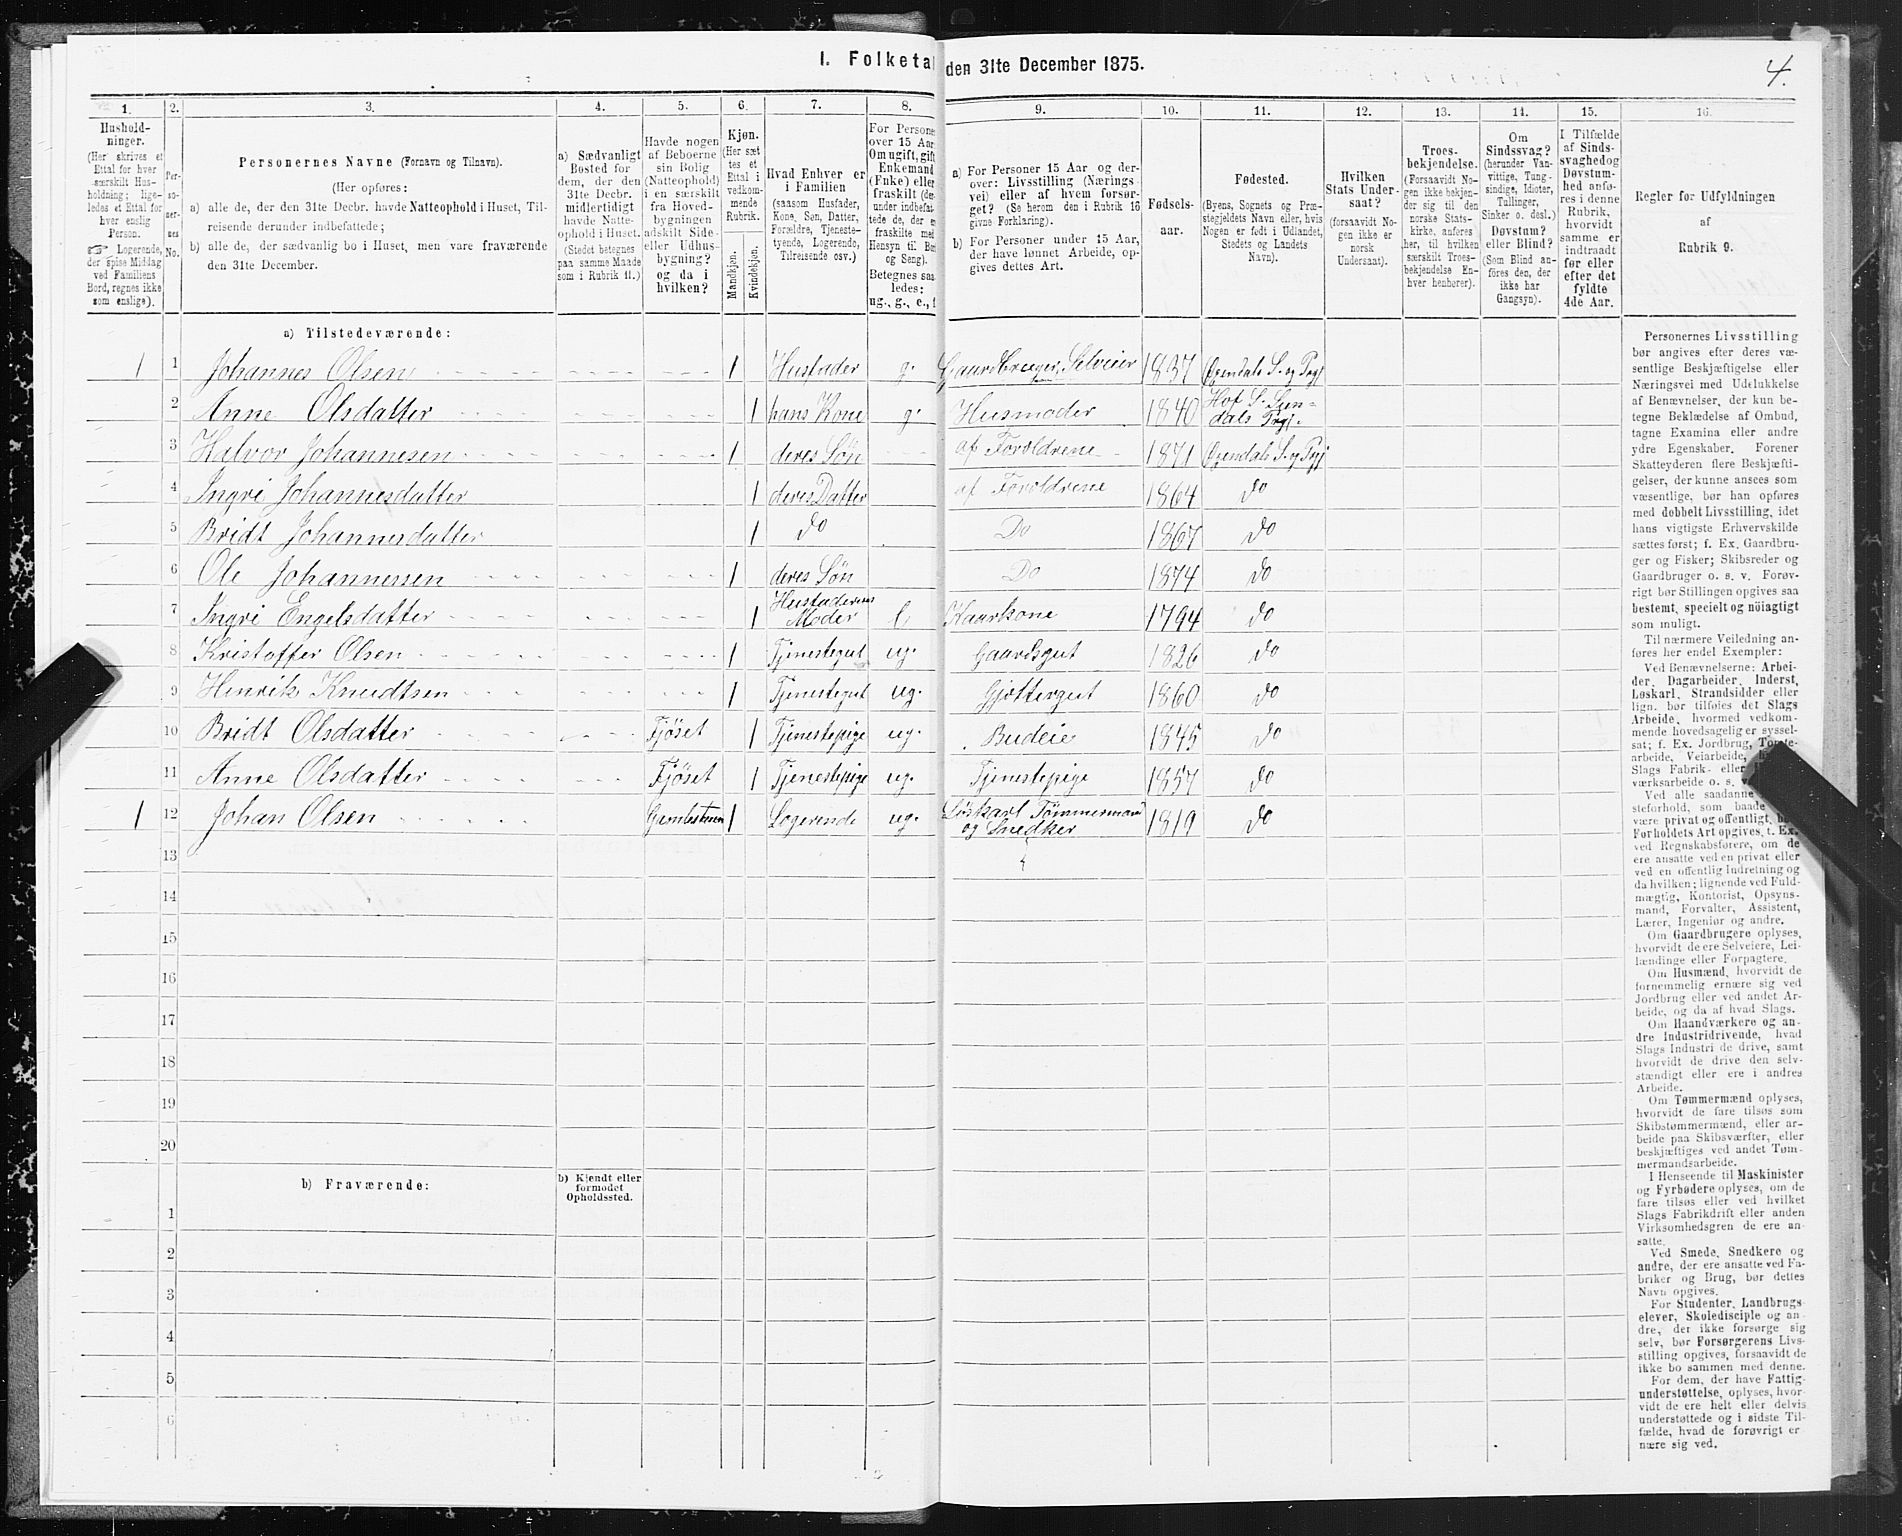 I. Folketal den 31te December 1875.
4.
1. 2. 3. 4. 5. 6. 7. 8. 9. 10. 11. 12. 13. 14. 15. 16.
Hushold-
ninger.
(Her skrives et
Ettal for hver
særskilt Hus-
holdning; lige-
ledes et Ettal for
hver enslig
Person.
☞ Logerende,
der spise Middag
ved Familiens
Bord, regnes ikke
som enslige).
Per-
so-
ner-
nes
No.
Personernes Navne (Fornavn og Tilnavn).
(Her opføres:
a) alle de, der den 31te Decbr. havde Natteophold i Huset, Til-
reisende derunder indbefattede;
b) alle de, der sædvanlig bo i Huset, men vare fraværende
den 31te December.
a) Sædvanligt
Bosted for
dem, der den
31te Decbr.
midlertidigt
havde Natte-
ophold i Huset.
(Stedet betegnes
paa samme Maade
som i Rubrik 11.)
Havde nogen
af Beboerne
sin Bolig
(Natteophold)
i en særskilt
fra Hoved-
bygningen
adskilt Side-
eller Udhus-
bygning?
og da i
hvilken?
Kjøn.
(Her sæt
tes et
Ettal i
vedkom-
mende
Rubrik.
Mandkjøn.
Kvindekjøn.
Hvad Enhver er
i Familien
(saasom Husfader,
Kone, Søn, Datter,
Forældre, Tjeneste-
tyende, Logerende,
Tilreisende osv.)
For Persone
over 15 Aar
Om ugift, gift
Enkemand
(Enke) eller
fraskilt (der-
under indbefat-
tede de, der e
fraskilte med
Hensyn til Bor
og Seng).
Betegnes saa-
ledes:
ug., g., e., f.
a) For Personer 15 Aar og der-
over: Livsstilling (Nærings-
vei) eller af hvem forsør-
get? (Se herom den i Rubrik 16
givne Forklaring).
b) For Personer under 15 Aar,
der have lønnet Arbeide, op-
gives dettes Art.
Fødsels-
aar.
Fødested.
(Byens, Sognets og Præ-
stegjeldets Navn eller, hvis
Nogen er født i Udlandet,
Stedets og Landets
Navn).
Hvilken
Stats Under-
saat?
(forsaavidt No-
gen ikke er
norsk
Undersaat).
Troes-
bekjendelse.
(Forsaavidt No-
gen ikke bekjen-
der sig til den
norske Stats-
kirke, anføres
her, til hvilken
særskilt Troes-
bekjendelse En-
hver henhører).
Om
Sindssvag?
(herunder Van-
vittige, Tung-
sindige, Idioter,
Tullinger,
Sinker o. desl.)
Døvstum?
eller Blind?
(Som Blind an-
føres den, der
ikke har
Gangsyn).
I Tilfælde
af Sinds-
svaghedog
Døvstum-
hed anfø-
res i denne
Rubrik,
hvorvidt
samme er
indtraadt
før eller
efter det
fyldte
4de Aar.
Regler for Udfyldningen
af
Rubrik 9.
a) Tilstedeværende:
1 1 Johannes Olsen 1 Husfader g. Gaardbruger, Selveier 1837 Øxendals S. og Prgj
2 Anne Olsdatter 1 hans Kone g. Husmoder 1840 Hof S. Sun-
dals Prgj.
3 Halvor Johannesen 1 deres Søn af Foroldrene 1871 Øxendals S. og Prgj
4 Ingri Johannesdatter 1 deres Datter af Foroldrene 1864 do
5 Bridt Johannesdatter 1 do Do 1867 do
6 Ole Johannessen 1 deres Søn Do 1874 do
7 Ingri Engelsdatter 1 Husfaderens
Moder e Kaarkone 1794 do
8 Kristoffer Olsen 1 Tjenestegut ug. Gaardsgut 1826 do
9 Henrik Knudtsen 1 Tjenestegut ug. Gjættergut 1860 do
10 Bridt Olsdatter Fjöset 1 Tjenestepige ug. Budeie 1845 do
11 Anne Olsdatter Fjöset 1 Tjenestepige ug. Tjenestepige 1857 do
1 12 Johan Olsen 1 Logerende ug. Löskarl Tømmermand
og Snedker 1819 do
13
14
15
16
17
18
19
20
b) Fraværende:
b) Kjendt eller
formodet
Opholdssted.
1
2
3
4
5
6
Personernes Livsstilling
bør angives efter deres væ-
sentlige Beskjæftigelse eller
Næringsvei med Udelukkelse
af Benævnelser, der kun be-
tegne Beklædelse af Ombud,
tagne Examina eller andre
ydre Egenskaber. Forener
Skatteyderen flere Beskjæfti-
gelser, der kunne ansees som
væsentlige, bør han opføres
med dobbelt Livsstilling, idet
hans vigtigste Erhvervskilde
sættes først; f. Ex. Gaardbru-
ger og Fisker; Skibsreder og
Gaardbruger o. s. v. Forøv-
rigt bør Stillingen opgives saa
bestemt, specielt og nøiagtigt
som muligt.
Til nærmere Veiledning an-
føres her endel Exempler:
Ved Benævnelserne: Arbei-
der, Dagarbeider, Inderst,
Løskarl, Strandsidder eller
lign. bør tilføies det Slags
Arbeide, hvormed vedkom-
mende hovedsagelig er syssel-
sat; f. Ex. Jordbrug, Tomte-
arbeide, Veiarbeide,
Slags Fabrik- eller
værksarbeide o. s. v.
Ved alle saadanne
steforhold, som baade
være privat og offentligt, bør
Forholdets Art opgives, t. Ex.
ved Regnskabsførere, om de
ere ansatte ved en privat eller
ved en offentlig Indretning og
da hvilken; lignende ved Fuld-
mægtig, Kontorist, Opsyns-
mand, Forvalter, Assistent,
Lærer, Ingeniør og andre.
Om Gaardbrugere oplyses,
hvorvidt de ere Selveiere, Lei-
lændinge eller Forpagtere.
Om Husmænd, hvorvidt de
fornemmelig ernære sig ved
Jordbrug eller ved andet Ar-
beide, og da af hvad Slags.
Om Haandværkere og an-
dre Industridrivende, hvad
Slags Industri de drive, samt
hvorvidt de drive den selv-
stændigt eller ere i andres
Arbeide.
Om Tømmermænd oplyses,
hvorvidt de fare tilsøs som
Skibstømmermænd, eller ar-
beide paa Skibsværfter, eller
beskjæftiges ved andet Tøm-
mermandsarbeide.
I Henseende til Maskinister
og Fyrbødere oplyses, om de
fare tilsøs eller ved hvilket
Slags Fabrikdrift eller anden
Virksomhedsgren de ere an-
satte.
Ved Smede, Snedkere og
andre, der ere ansatte ved Fa-
briker og Brug, bør dettes
Navn opgives.
For Studenter, Landbrugs-
elever, Skoledisciple og an-
dre, der ikke forsørge sig
selv, bør Forsørgerens Livs-
stilling opgives, forsaavidt de
ikke bo sammen med denne.
For dem, der have Fattig-
understøttelse, oplyses, hvor-
vidt de ere helt eller delvis
understøttede og i sidste Til-
fælde, hvad de forøvrigt er-
nære sig ved.